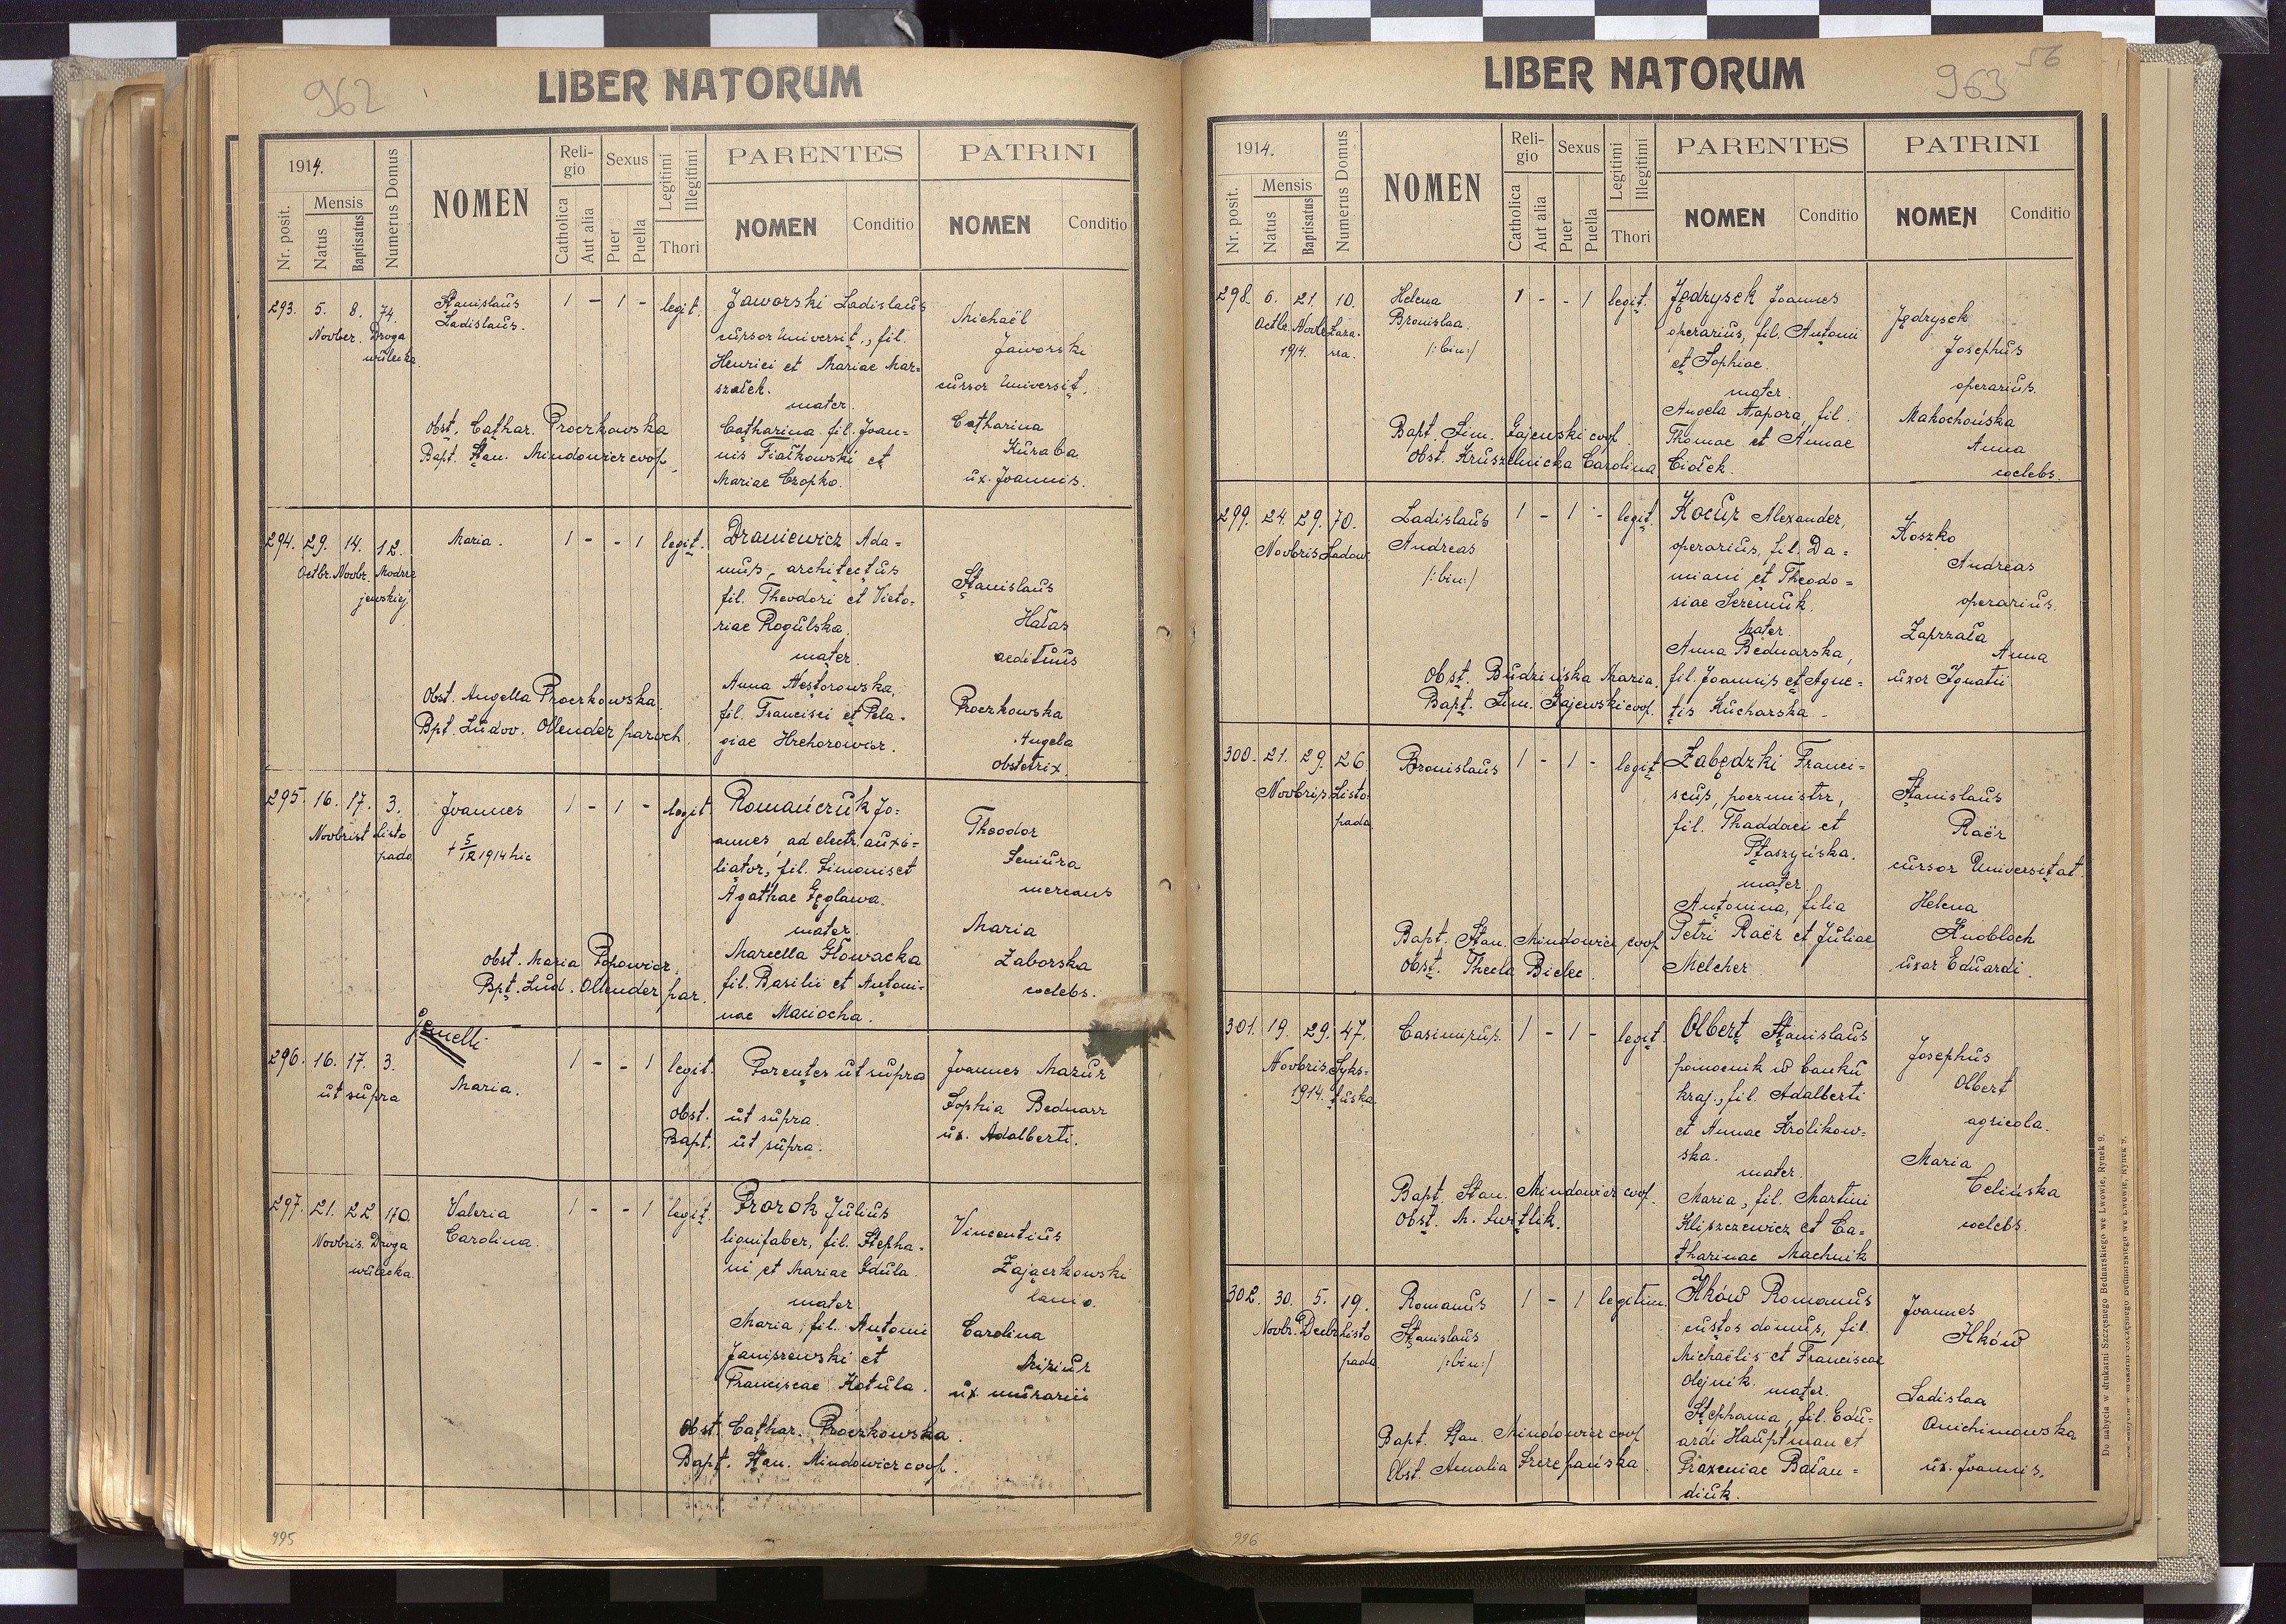 962
LIBER NATORUM
1914.
Nr. posit.
Mensis
Natus
Baptisatus
Numerus Domus
NOMEN
Religio
Catholica
Aut alia
Sexus
Puer
Puella
Legitimi
Illegitimi
Thori
PARENTES
NOMEN
Conditio
PATRINI
NOMEN
Conditio
293. 5. 8. 74.
Novber. Droga
wulecka
Stanislaus
Ladislaus.
1 - 1 - legit.
Jaworski Ladislaus
cursor Universit., fil.
Henrici et Mariae Mar=
szałek.
mater.
Catharina fil. Joan=
nis Fiałkowski et
Mariae Czopko.
Michaël
Jaworski
cursor Universit.
Catharina
Kuraba
ux. Joannis.
Obst. Cathar. Proczkowska
Bapt. Stan. Mindowicz coop.
294. 29. 14. 12.
Octbr. Novbr. Modrze
jewskiej
Maria.
1 - - 1 legit.
Draniewicz Ada=
mus, architectus
fil. Theodori et Victo=
riae Rogulska.
mater.
Anna Nestorowska,
fil. Francisci et Pela=
giae Hrehorowicz.
Stanislaus
Hałas
aedituus
Proczkowska
Angela
obstetrix.
Obst. Angella Proczkowska.
Bpt. Ludov. Ollender paroch.
295. 16. 17. 3.
Novbrist Listo
pada
Joannes
+ 5/12 1914 hic
1 - 1 - legit.
Romańczuk Jo=
annes, ad electr. auxi=
liator, fil. Simonis et
Agathae Gęglawa.
mater.
Marcella Głowacka
fil. Basilii et Antoni=
nae Maciocha.
Theodor
Seniura
mercans
Maria
Zaborska
coelebs.
obst. Maria Popowicz.
Bpt. Lud. Ollender par.
gemelli
296. 16. 17. 3.
ut supra
Maria.
1 - - 1 legit.
Parentes ut supra
Obst. ut supra.
Bapt. ut supra.
Joannes Mazur
Sophia Bednarz
ux. Adalberti.
297. 21. 22. 170.
Novbris. Droga
wulecka.
Valeria
Carolina.
1 - - 1 legit.
Prorok Julius
lignifaber, fil. Stepha=
ni et Mariae Gdula.
mater
Maria, fil. Antoni
Janiszewski et
Franciscae Katula.
Vincentius
Zajączkowski
lanio.
Carolina
Miziur
ux. murarii
Obst. Cathar. Proczkowska.
Bapt. Stan. Mindowicz coop.
995
963
56
LIBER NATORUM
1914.
Nr. posit.
Mensis
Natus
Baptisatus
Numerus Domus
NOMEN
Religio
Catholica
Aut alia
Sexus
Puer
Puella
Legitimi
Illegitimi
Thori
PARENTES
NOMEN
Conditio
PATRINI
NOMEN
Conditio
298. 6. 21. 10.
Octbr. Novbr. Łaza=
1914. rza.
Helena
Bronislaa.
/:bin:/
1 - - 1 legit.
Jędrysek Joannes
operarius, fil. Antonii
et Sophiae.
mater.
Angela Napora, fil.
Thomae et Annae
Ciołek.
Jędrysek
Josephus
operarius.
Makochońska
Anna
coelebs.
Bapt. Sim. Gajewski coop.
Obst. Kruszelnicka Carolina
299. 24. 29. 70.
Novbris Sadow.
Ladislaus
Andreas
/:bin:/
1 - 1 - legit.
Kocur Alexander,
operarius, fil. Da=
miani et Theodo=
siae Szremuk.
Mater.
Anna Bednarska,
fil. Joannis et Agne=
tis Kucharska -
Koszko
Andreas
operarius.
Zaprzała
Anna
uxor Ignatii
Obst. Budzińska Maria.
Bapt. Sim. Gajewski coop.
300. 21. 29. 26
Novbris Listo=
pada.
Bronislaus
1 - 1 - legit.
Łabędzki Franci=
scus, poczmistrz,
fil. Thaddaei et
Ptaszyńska.
mater
Antonina, filia
Petri Raër et Juliae
Melcher.
Stanislaus
Raër
cursor Universitat.
Helena
Knobloch
uxor Eduardi.
Bapt. Stan. Mindowicz coop
Obst. Thecla Bielec.
301. 19. 29. 47.
Novbris. Syks=
1914. tuska.
Casimirus.
1 - 1 - legit.
Olbert Stanislaus
pomocnik w banku
kraj., fil. Adalberti
et Annae Królikow=
ska.
mater.
Maria, fil. Martini
Kliszczewicz et Ca=
tharinae Machnik
Josephus
Olbert
agricola.
Maria
Celińska
coelebs.
Bapt. Stan. Mindowicz coop.
Obst. M. Switlik.
302. 30. 5. 19.
Novbr. Decbr. Listo
pada
Romanus
Stanislaus
/:bin:/
1 - 1 legitim.
Ilków Romanus
custos domus, fil.
Michaëlis et Franciscae
Olejnik. mater.
Stephania, fil. Edu=
ardi Hauptman et
Praxeniae Bałan=
diuk.
Joannes
Ilków
Ladislaa
Onichimowska
ux. Joannis.
Bapt. Stan. Mindowicz coop
Obst. Amalia Szczepańska.
996
Do nabycia w drukarni Szczęsnego Bednarskiego we Lwowie, Rynek 9.